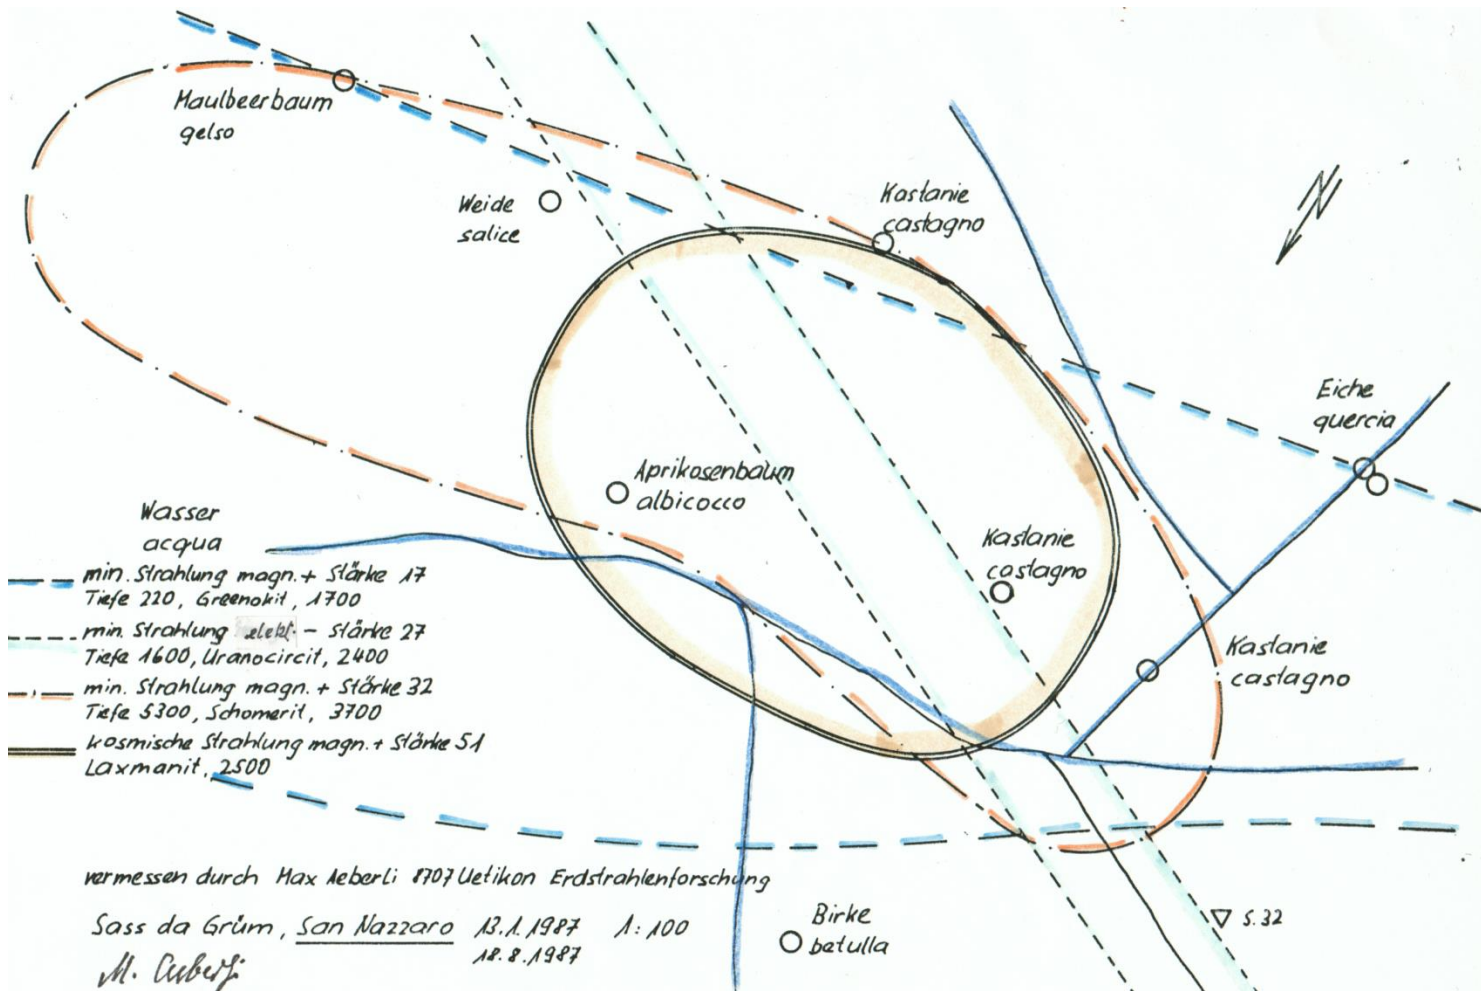 Maulbeerbaum
gelso
Weide
salice
Kastanie
castagno
N
Eiche
quercia
Aprikosenbaum
albicocco
Kastanie
castagno
Kastanie
castagno
Wasser
acqua
min. Strahlung magn. + Stärke 17
Tiefe 220, Greenokit, 1700
min. Strahlung elekt. - Stärke 27
Tiefe 1600, Uranocircit, 2400
min. Strahlung magn. + Stärke 32
Tiefe 5300, Schomerit, 3700
kosmische Strahlung magn. + Stärke 51
Laxmanit, 2500
vermessen durch Max Aeberli 8707 Uetikon Erdstrahlenforschung
Sass da Grüm, San Nazzaro 13.1.1987 1:100
18.8.1987
M. Aeberli
Birke
betulla
S.32